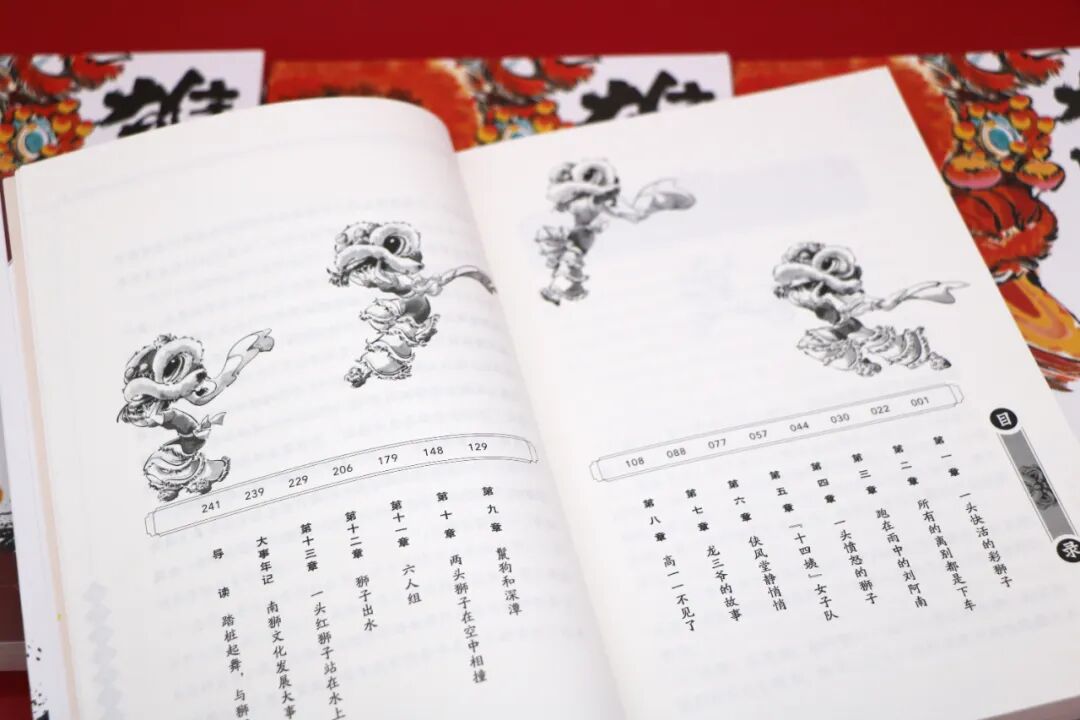 目录
001
第一章 一头快活的彩狮子
022
第二章 所有的离别都是下车
030
第三章 跑在雨中的刘阿南
044
第四章 一头愤怒的狮子
057
第五章 「十四姨」女子队
077
第六章 伏风堂静悄悄
088
第七章 龙三爷的故事
108
第八章 高一一不见了
129
第九章 鬣狗和深潭
148
第十章 两头狮子在空中相撞
179
第十一章 六人组
206
第十二章 狮子出水
229
第十三章 一头红狮子站在水上
239
大事年记 南狮文化发展大事
241
导读 踏桩起舞，与狮